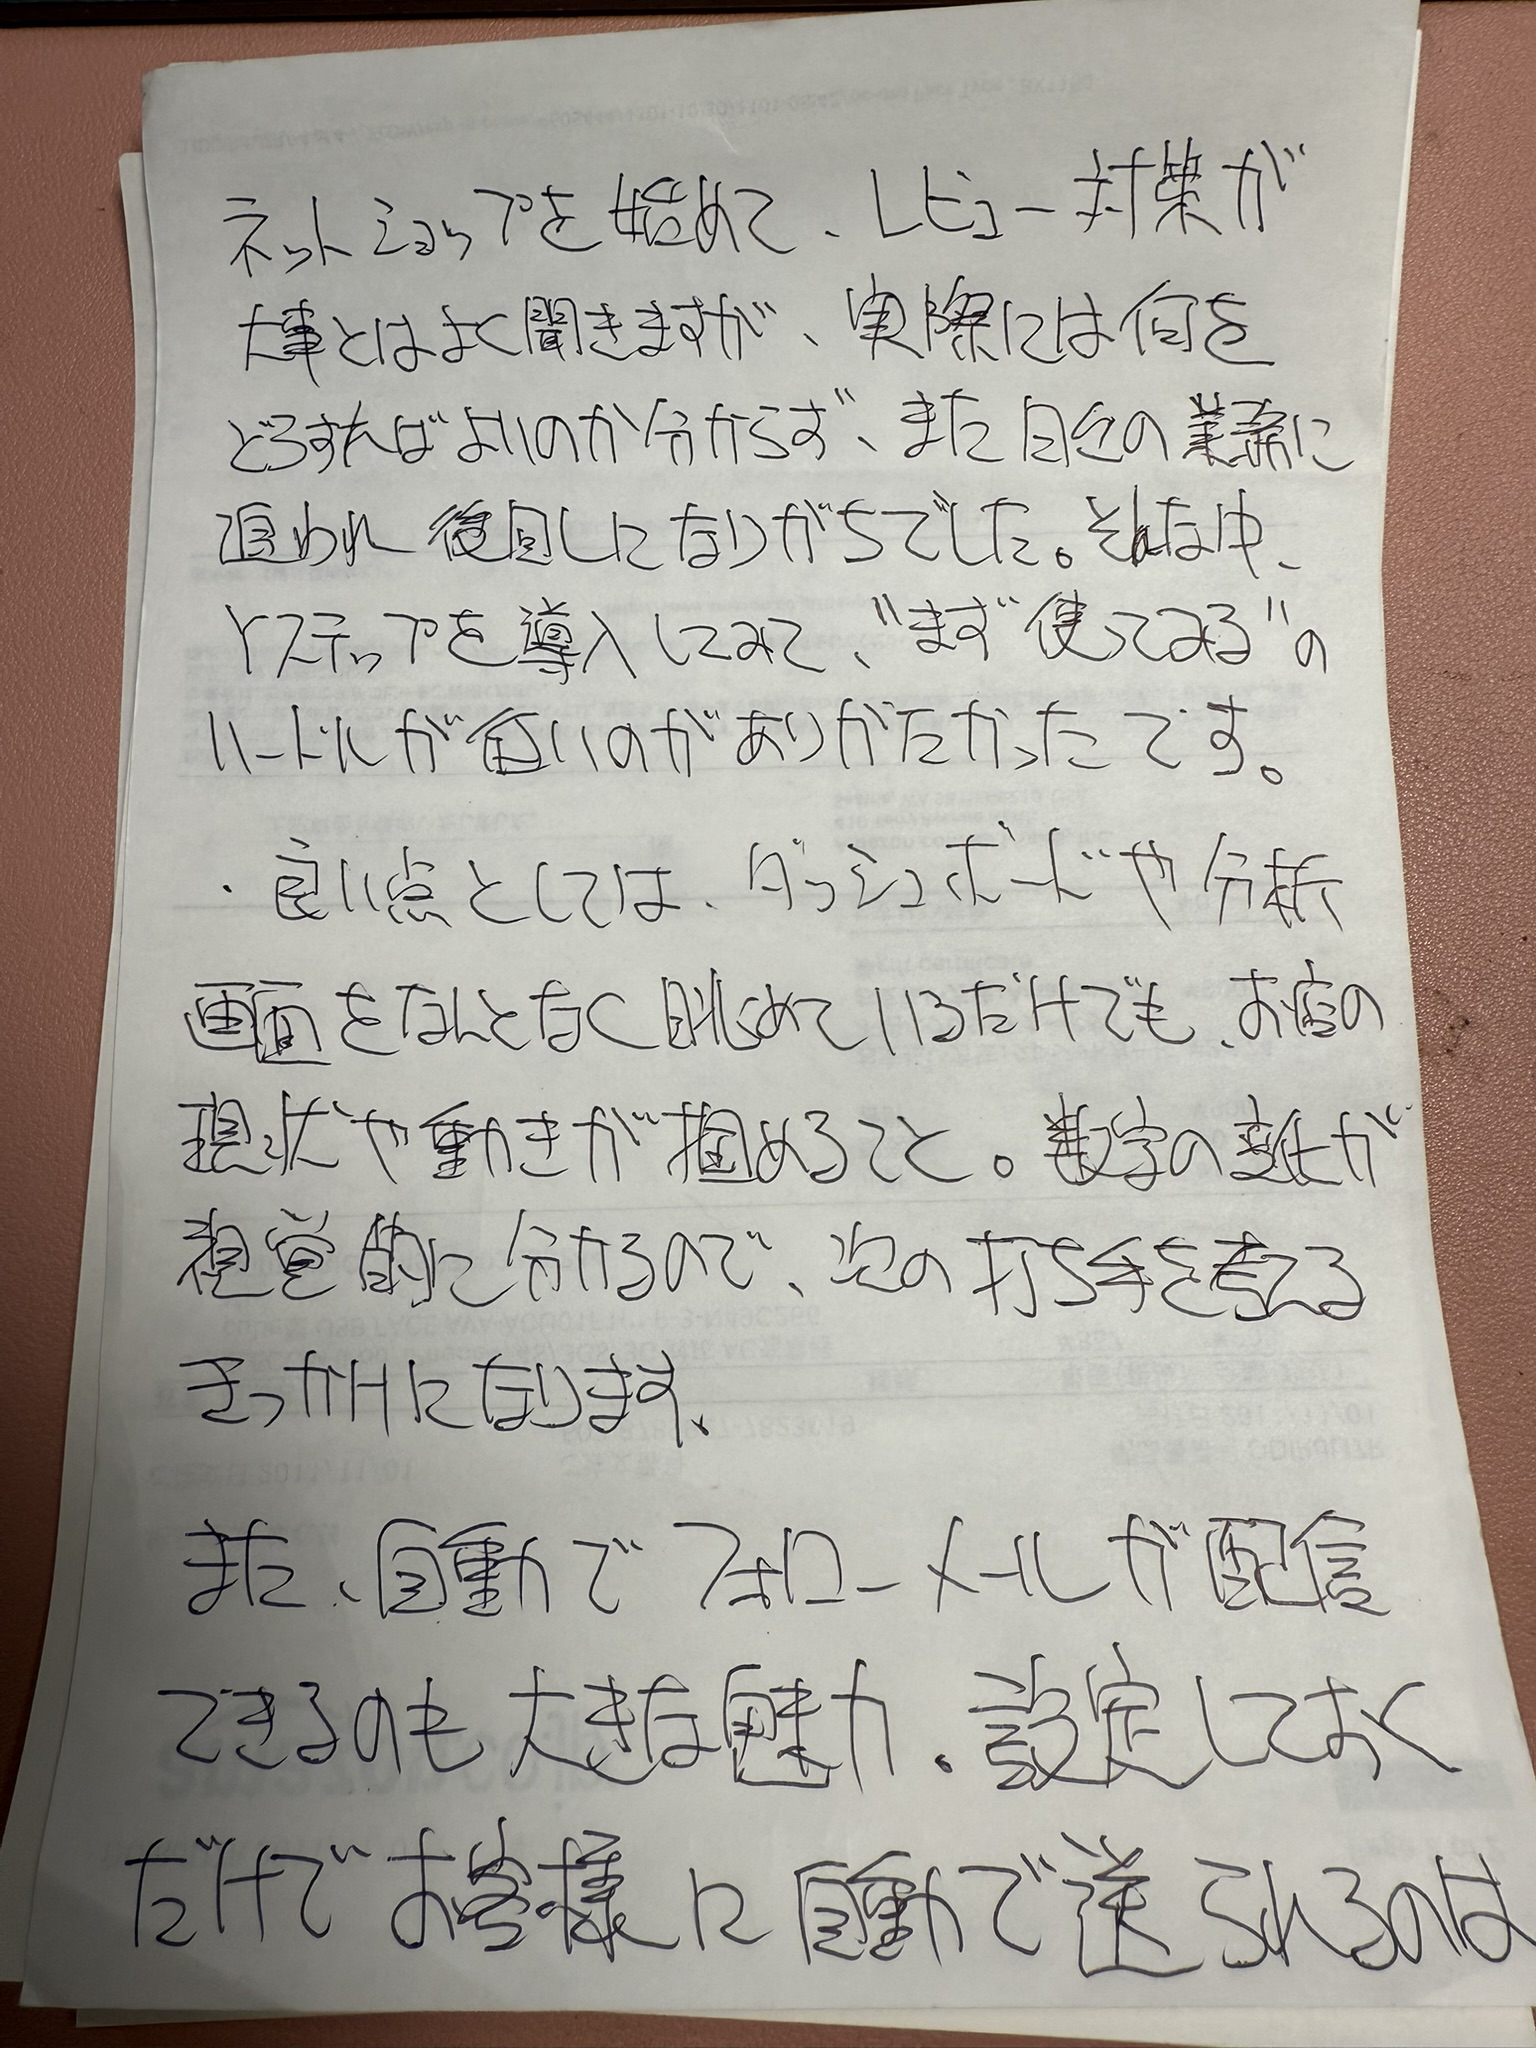 ネットショップを始めて、レビュー対策が
大事とはよく聞きますが、実際には何を
どうすればよいのか分からず、また目先の業務に
追われ後回しになりがちでした。そんな中、
Yステップを導入してみて、“まず使ってみる”の
ハードルが低いのがありがたかったです。
・良い点としては、ダッシュボードや分析
画面をなんとなく眺めているだけでも、お店の
現状や動きが掴めること。数字の変化が
視覚的に分かるので、次の打ち手を考える
きっかけになります、
また、自動でフォローメールが配信
できるのも大きな魅力。設定しておく
だけでお客様に自動で送られるのは